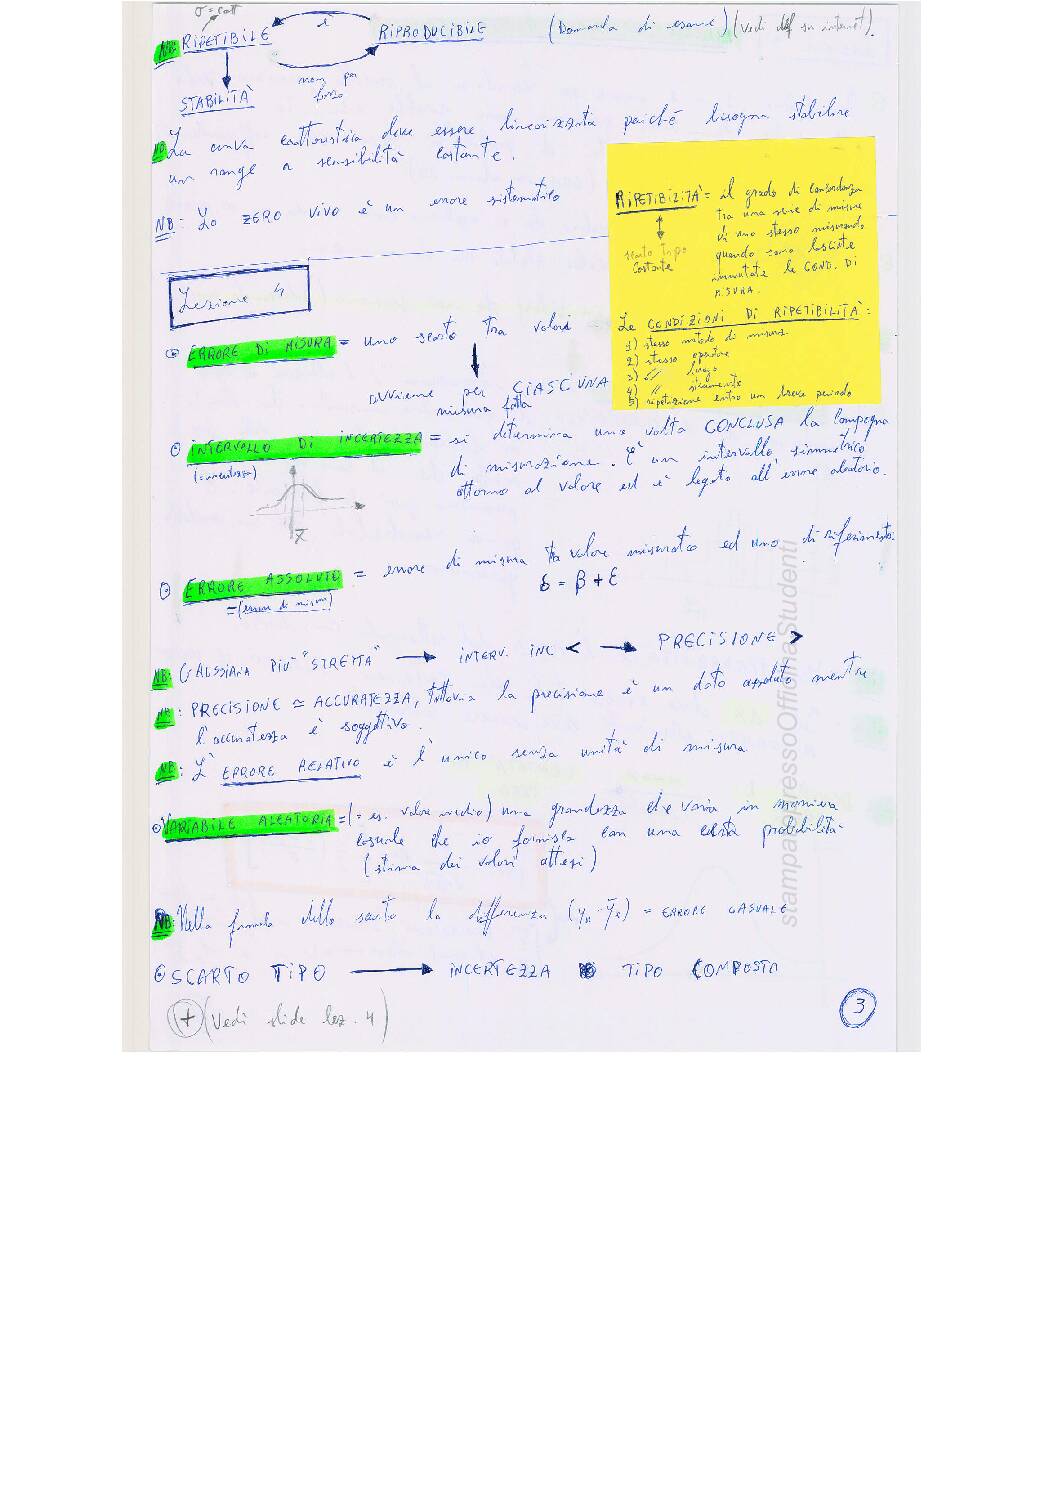 σ = cost
NB: RIPETIBILE è RIPRODUCIBILE (Domanda di esame) (Vedi def su internet).
non per
forza
STABILITÀ
NB: La curva caratteristica deve essere linearizzata poiché bisogna stabilire
un range a sensibilità costante.
NB: Lo ZERO VIVO è un errore sistematico
RIPETIBILITÀ = il grado di concordanza
tra una serie di misure
di uno stesso misurando
quando sono lasciate
immutate le COND. DI
MISURA.
scarto tipo
costante
Le CONDIZIONI DI RIPETIBILITÀ:
1) stesso metodo di misura
2) stesso operatore
3) // luogo
4) // strumento
5) ripetizione entro un breve periodo
Lezione 4
ERRORE DI MISURA = uno scarto tra valori
avviene per CIASCUNA
misura fatta
INTERVALLO DI INCERTEZZA = si determina una volta CONCLUSA la campagna
(= incertezza)
di misurazione. È un intervallo simmetrico
attorno al valore ed è legato all'errore aleatorio.
x̄
ERRORE ASSOLUTO = errore di misura tra valore misurato ed uno di riferimento.
= (errore di misura)
δ = β + ε
NB: GAUSSIANA PIÙ "STRETTA" → INTERV. INC < → PRECISIONE >
NB: PRECISIONE ≃ ACCURATEZZA, tuttavia la precisione è un dato assoluto mentre
l'accuratezza è soggettivo.
NB: L'ERRORE RELATIVO è l'unico senza unità di misura
VARIABILE ALEATORIA = (= es. valore medio) una grandezza che varia in maniera
casuale che io fornisco con una certa probabilità
(stima dei valori attesi)
NB: Nella formula dello scarto la differenza (yk - ȳk) = ERRORE CASUALE
SCARTO TIPO → INCERTEZZA TIPO COMPOSTA
+ (Vedi slide lez. 4)
3
stampato presso Officina Studenti